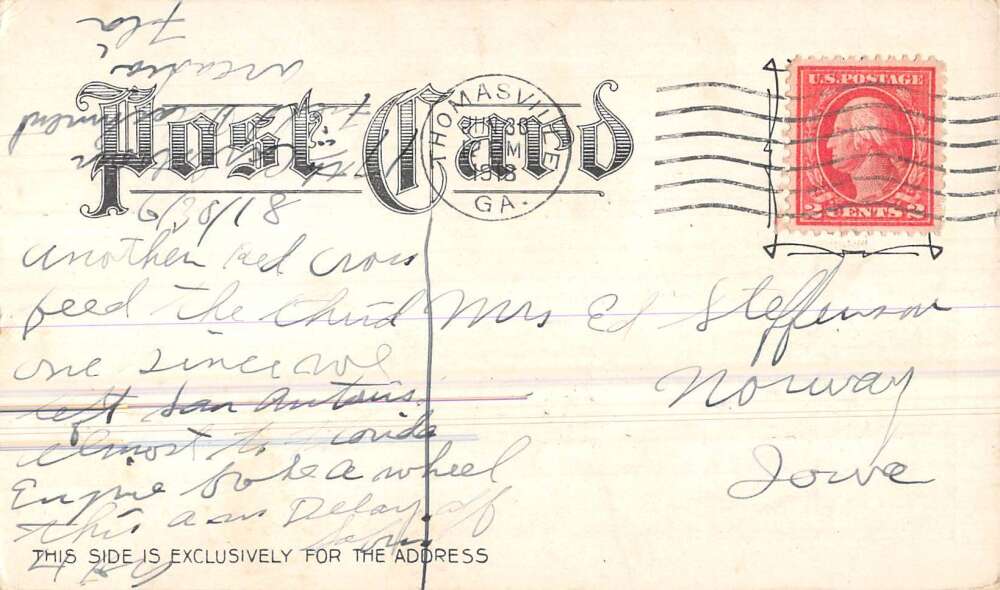 Post Card
THOMASVILLE
30
M
1918
GA.
U.S. POSTAGE
2 CENTS 2
another Red Cross
feed the third
one since we
left San Antonio
almost to Florida
Engine broke a wheel
this a m Delay of
Mrs Ed Steffenson
Norway
Iowa
THIS SIDE IS EXCLUSIVELY FOR THE ADDRESS
arcadia,
Fla